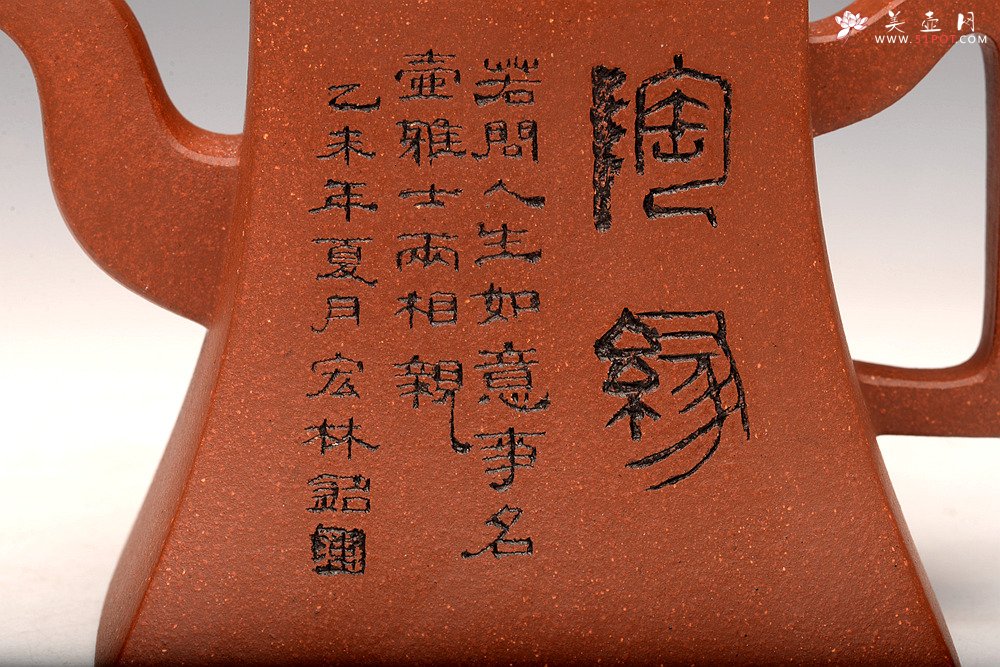 陶缘
若問人生如意事名
壶雅士兩相親
乙未年夏月宏林銘
美壶网
WWW.51POT.COM